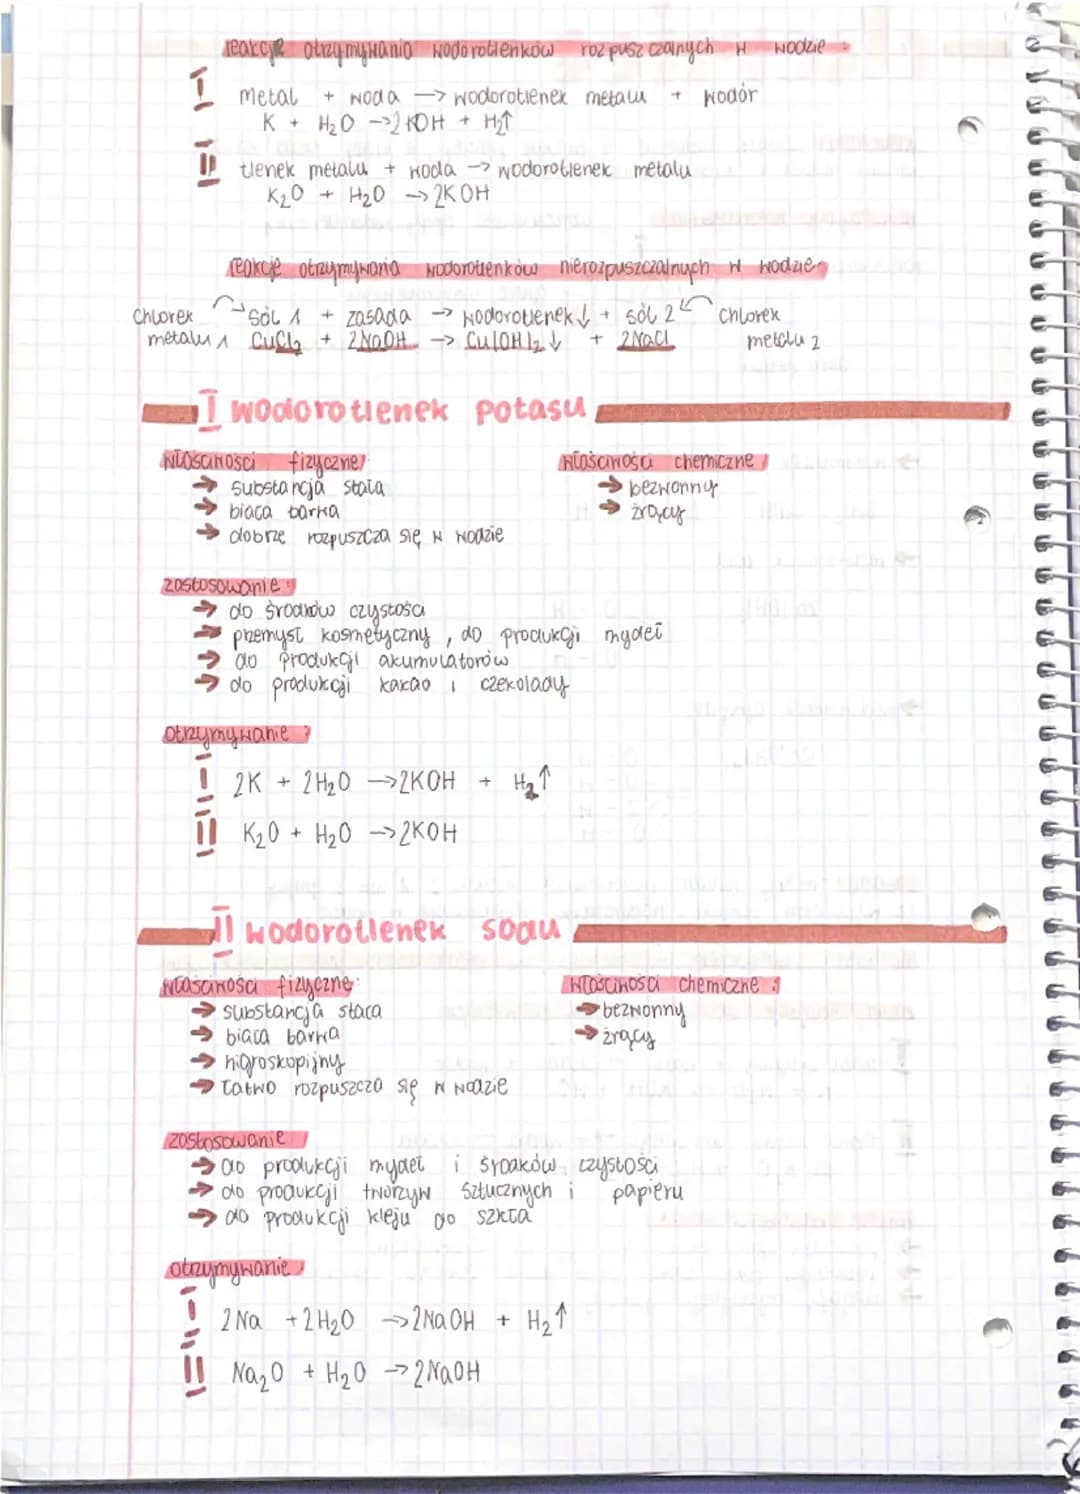 reakcje otrzymywania wodorotlenków rozpuszczalnych w wodzie:
I metal + woda → wodorotlenek metalu + wodór
K + H₂O → 2KOH + H₂↑
II tlenek metalu + woda → wodorotlenek metalu
K₂O + H₂O → 2KOH
reakcje otrzymywania wodorotlenków nierozpuszczalnych w wodzie:
chlorek sól 1 + zasada → wodorotlenek↓ + sól 2 chlorek
metalu 1 CuCl₂ + 2NaOH → Cu(OH)₂↓ + 2NaCl metalu 2
I wodorotlenek potasu
właściwości fizyczne:
→ substancja stała
→ biała barwa
→ dobrze rozpuszcza się w wodzie
właściwości chemiczne:
→ bezwonny
→ żrący
zastosowanie:
→ do środków czystości
→ przemysł kosmetyczny, do produkcji mydeł
→ do produkcji akumulatorów
→ do produkcji kakao i czekolady
otrzymywanie:
I 2K + 2H₂O → 2KOH + H₂↑
II K₂O + H₂O → 2KOH
II wodorotlenek sodu
właściwości fizyczne:
→ substancja stała
→ biała barwa
→ higroskopijny
→ łatwo rozpuszcza się w wodzie
właściwości chemiczne:
→ bezwonny
→ żrący
zastosowanie:
→ do produkcji mydeł i środków czystości
→ do produkcji tworzyw sztucznych i papieru
→ do produkcji kleju do szkła
otrzymywanie:
I 2Na + 2H₂O → 2NaOH + H₂↑
II Na₂O + H₂O → 2NaOH